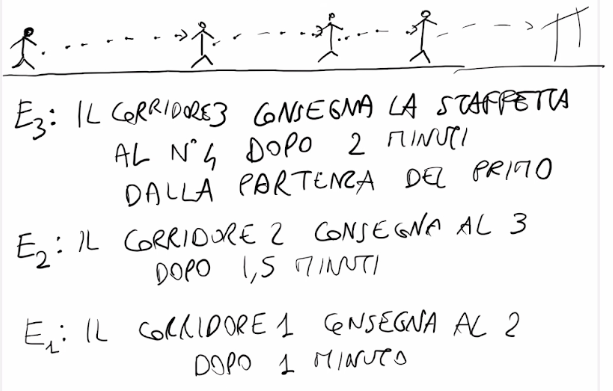 E3: IL CORRIDORE 3 CONSEGNA LA STAFFETTA
AL N°4 DOPO 2 MINUTI
DALLA PARTENZA DEL PRIMO
E2: IL CORRIDORE 2 CONSEGNA AL 3
DOPO 1,5 MINUTI
E1: IL CORRIDORE 1 CONSEGNA AL 2
DOPO 1 MINUTO